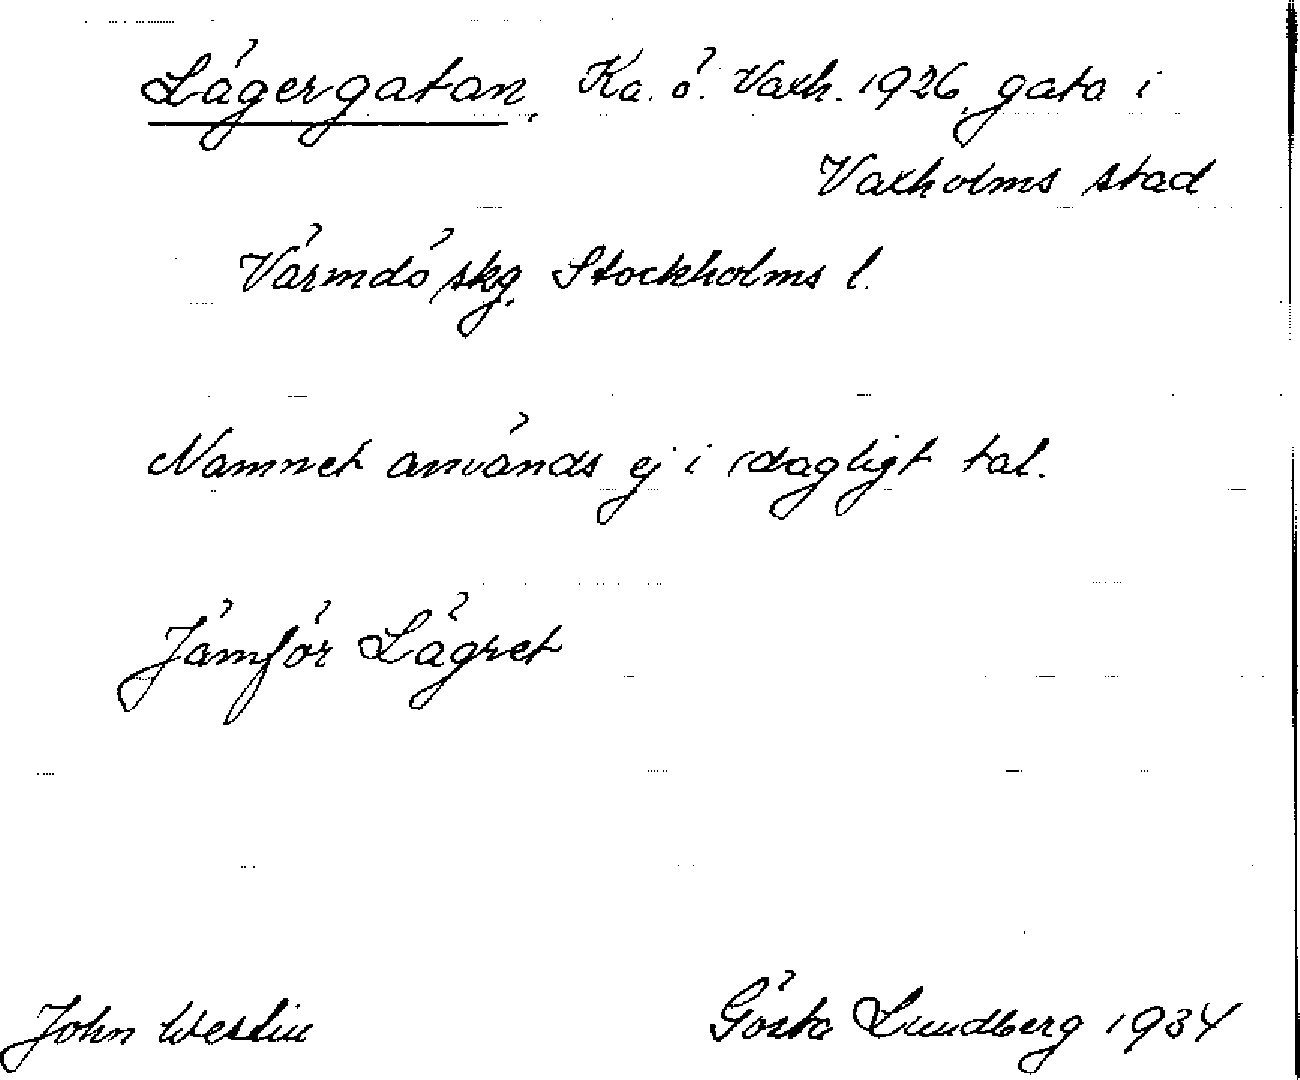 Lägergatan. Ka. ö. Vaxh. 1926, gata i
Vaxholms stad
Värmdö skg. Stockholms l.
Namnet används ej i dagligt tal.
Jämför Lägret
John Westin Gösta Lundberg 1934